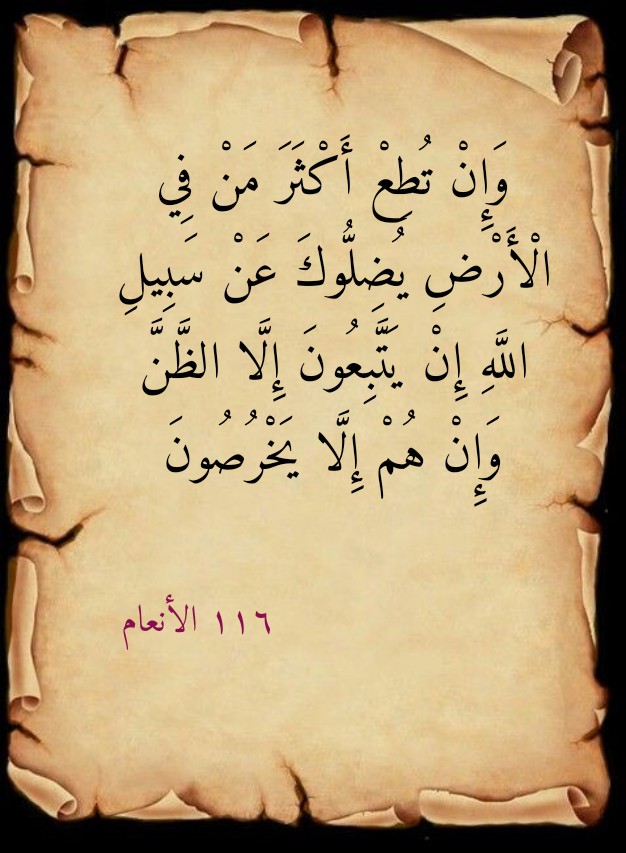 وَإِنْ تُطِعْ أَكْثَرَ مَنْ فِي
الْأَرْضِ يُضِلُّوكَ عَنْ سَبِيلِ
اللَّهِ إِنْ يَتَّبِعُونَ إِلَّا الظَّنَّ
وَإِنْ هُمْ إِلَّا يَخْرُصُونَ
١١٦ الأنعام